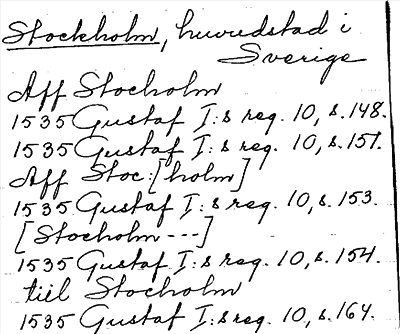 Stockholm, huvudstad i
Sverige
Aff Stocholm
1535 Gustaf I:s reg. 10, s. 148.
1535 Gustaf I:s reg. 10, s. 151.
Aff Stoc:[holm]
1535 Gustaf I:s reg. 10, s. 153.
[Stocholm---]
1535 Gustaf I:s reg. 10, s. 154.
tiil Stocholm
1535 Gustaf I:s reg. 10, s. 164.